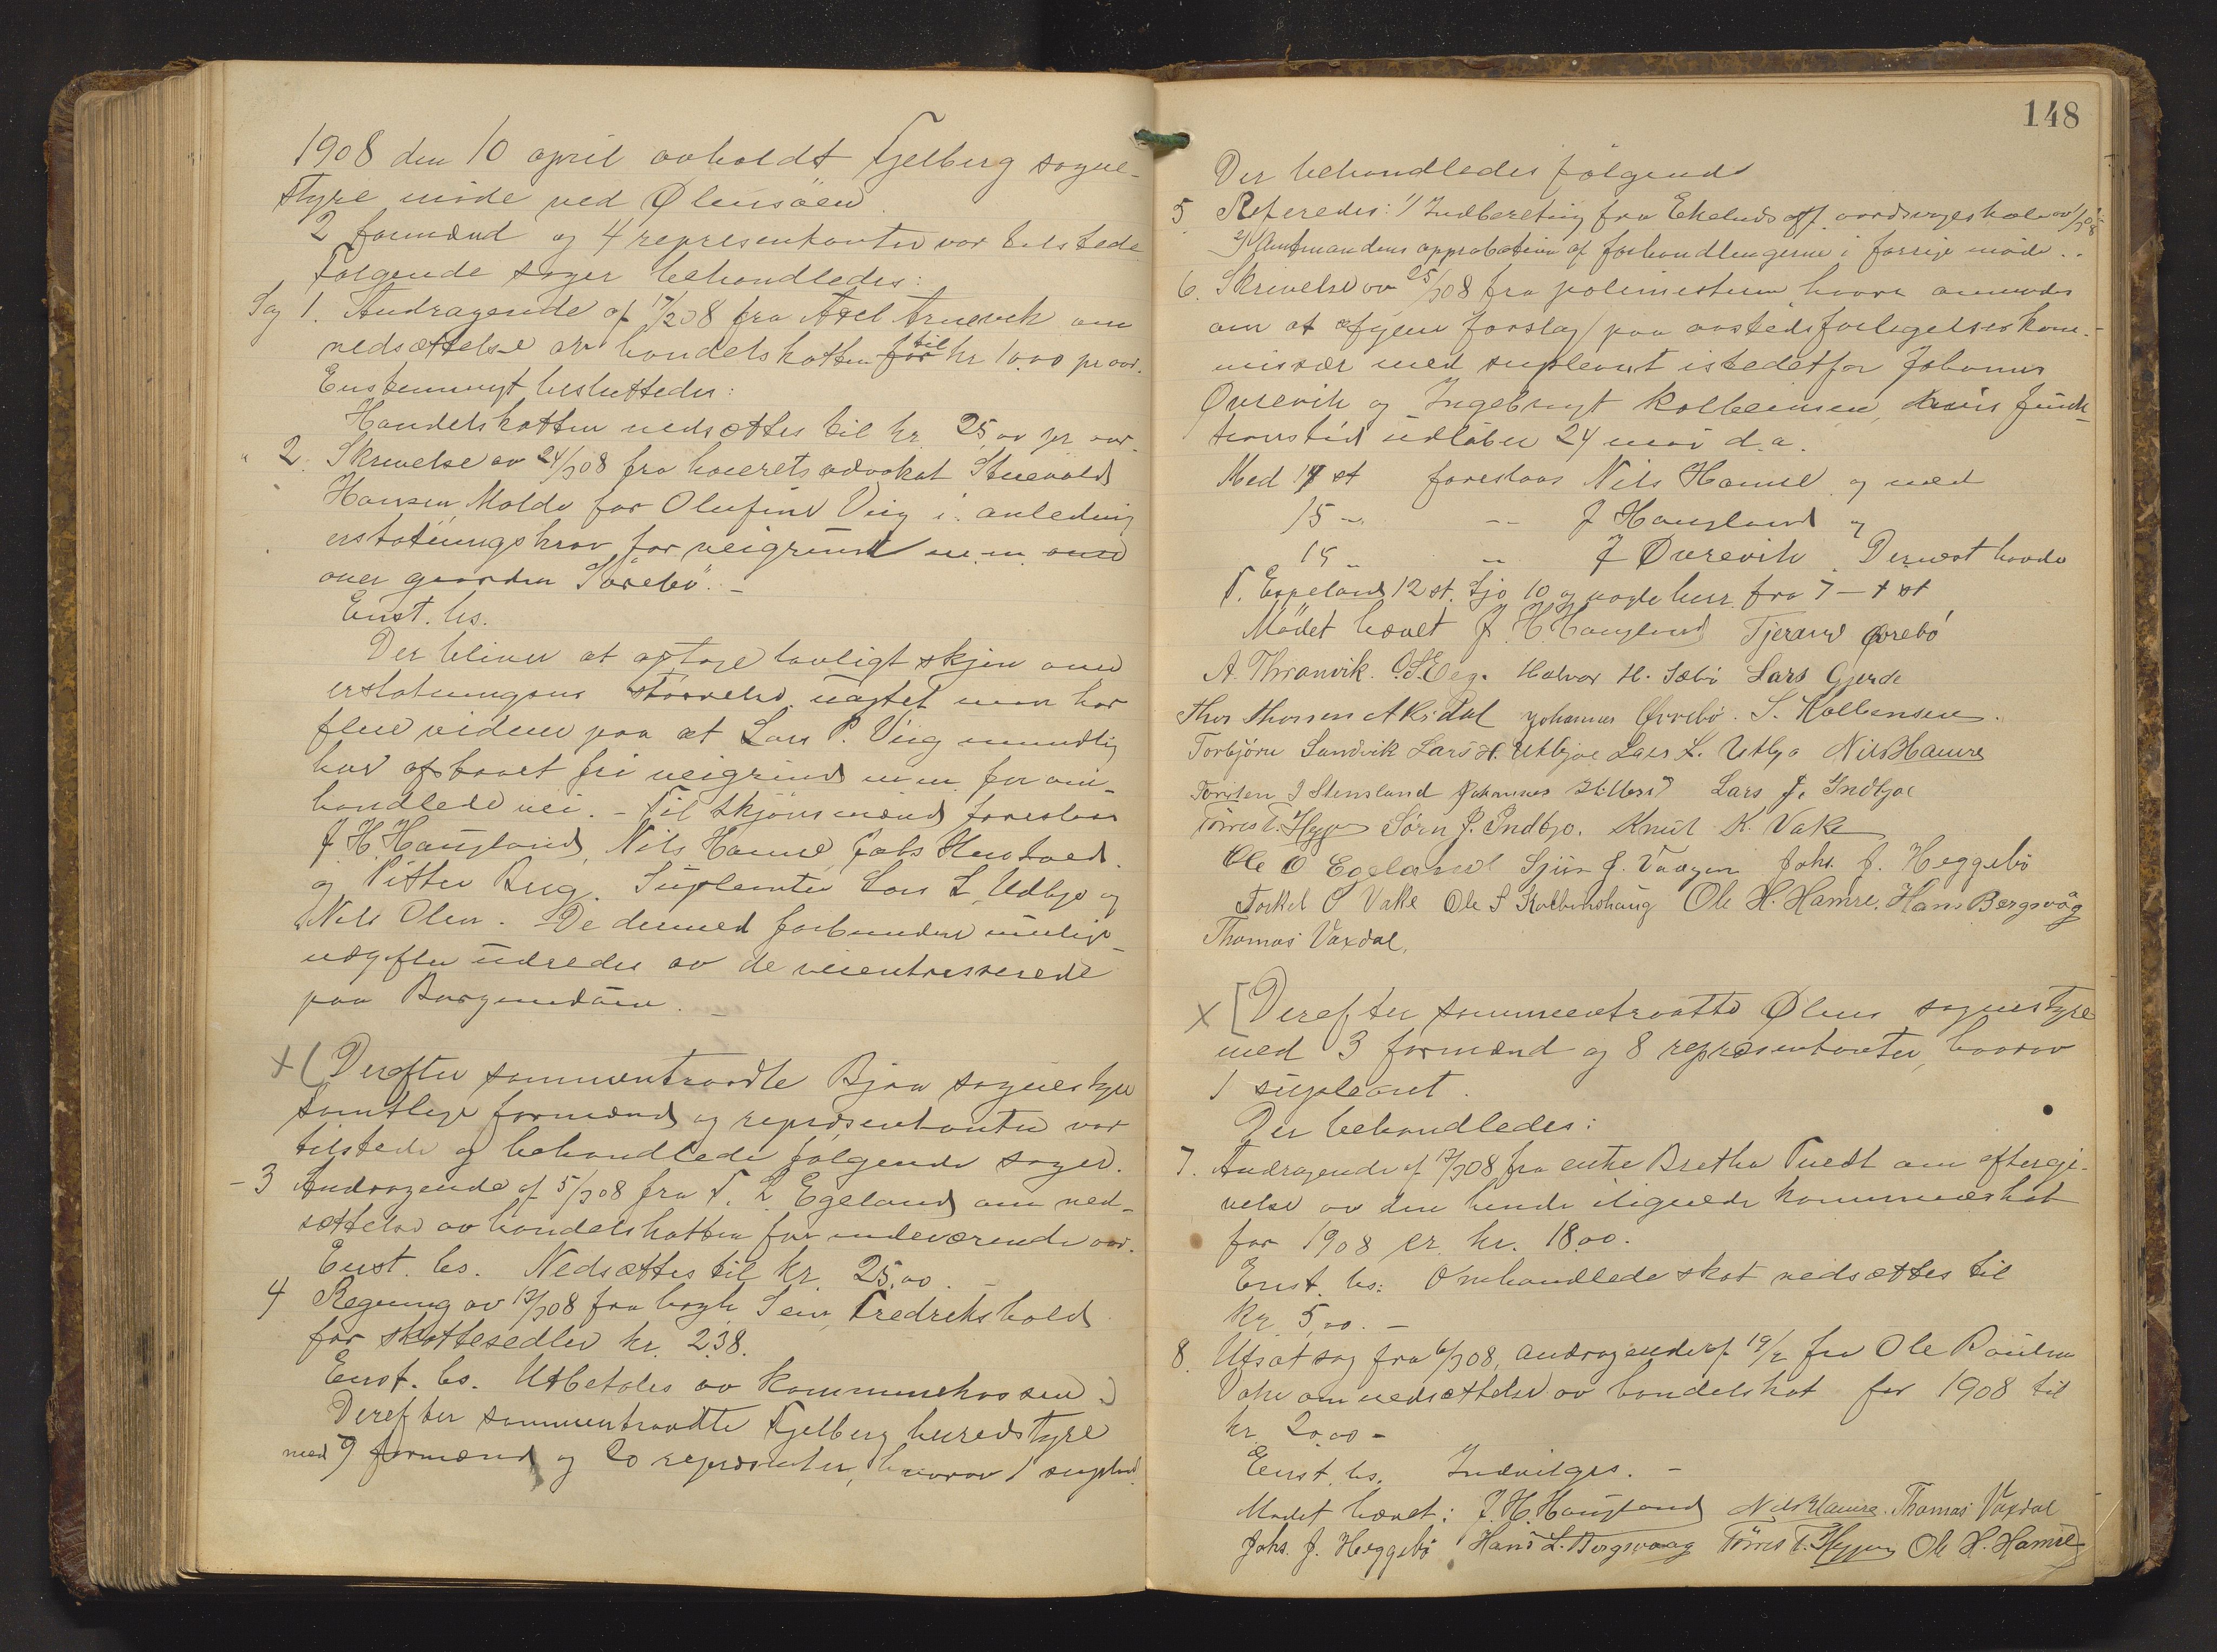 1908 den 10 april avholdt Fjelberg sogne-
styre møde ved Ølensöen.
2 formænd og 4 representanter var tilstede
Følgende sager behandledes:
Sag 1. Andragende af 17/208 fra Axel Arnevik om
nedsættelse av handelskatten for til kr 10.00 pr aar.
Enstemmigt besluttedes:
Handelskatten nedsættes til kr. 25,00 pr aar.
2. Skrivelse av 24/308 fra høierets advokat Stuevold
Hansen, Molde for Olufine Vig i anledning
erstatningskrav for veigrund m.m.
over gaarden Sörebö. -
Enst. bs.
Der bliver at optage lovligt skjøn over
erstatningens størrelse uagtet man har
flere vidner paa at Lars P. Vig mundtlig
har opbaaet fri veigrund m.m. for om-
handlede vei. - Til skjønsmænd foreslaas
J. H. Haugland, Nils Hamre,
og Pitter Berg. Suplenter Lars L. Udbjo og
Nils Olen. De dermed forbundne mulige
udgifter udredes av de veientresserede
paa
x ( Derefter sammentraadte Bjoa sognestyre
samtlige formænd og repræsentanter var
tilstede og behandlede følgende sager.
- 3 Andragende af 5/308 fra T. L. Egeland om ned-
sættelse av handelskatten for indeværende aar.
Enst. bs. Nedsættes til kr. 25.00. -
4 Regning av 13/308 fra bogh. Sem, Fredrikshald
for skattesedler kr. 2.38.
Enst. bs. Utbetales av kommunekassen.)
Derefter sammentraadte Fjelberg heredstyre
med 9 formænd og 20 repræsenter, hvorav 1 suplent.
148
Der behandledes følgende
5 Referedes: 1/ Indberetning fra Ekelunds off. vordsrugeskole av
2/ Amtmandens approbation af forhandlingerne i forrige møde..
6. Skrivelse av 25/308 fra polimesteren hvori anmodes
om at afgive forslag paa aastedsforligelseskom-
missær med supleant istedetfor Johannes
Øvrevik og Ingebrigt Kolbeinsen, hvis funk-
tionstid udløber 24 mai d.a.
Med 17 st foreslaas Nils Hamre og med
15 - -- J Haugland og
15 - -- J Øvrevik. Dernæst havde
T. Espeland 12 st. Sjo 10 og nogle herr. fra 7 - 1 st
Mødet hævet J. H. Haugland Tjerand Øvrebö
A. Thranvik. O.S. Eeg. Halvor H. Sæbö Lars Gjerde
Thor Thorsen Akidal Johannes Øvrebö. S. Kolbensen.
Torbjörn Sandvik Lars H. Utbjoe Lars L. Utbjo Nils Hamre
Torsten J Stensland Johannes Lars J. Indbjoe
Törres T. Hegge Sörn J. Indbjo. Knut K. Vake
Ole O Egeland Sjur J. Vaagen Johs. J. Heggebö
Torkel O Vake Ole S Kolbenshaug Ole H. Hamre. Hans Bergsvåg
Thomas Vaxdal.
x [ Derefter sammentraatte Ølens sognestyre
med 3 formænd og 8 repræsentanter, hvorav
1 supleant.
Der behandledes:
7. Andragende af 17/308 fra enke Bretha Tvedt om eftergi-
velse av den hende ilignede kommuneskat
for 1908 er kr. 18.00.
Enst. bs: Omhandlede skat nedsættes til
kr 5,00. -
8. Utsat sag fra 6/308, andragende af 19/2 fra Ole Paulsen
Vake om nedsættelse av handelskat for 1908 til
kr 20.00 -
Enst. bs. Indvilges. -
Mødet hævet: J. H. Haugland Nils Hamre. Thomas Vaxdal
Johs. J. Heggebö Hans L. Bergsvaag Törres T. Hegge Ole H. Hamre